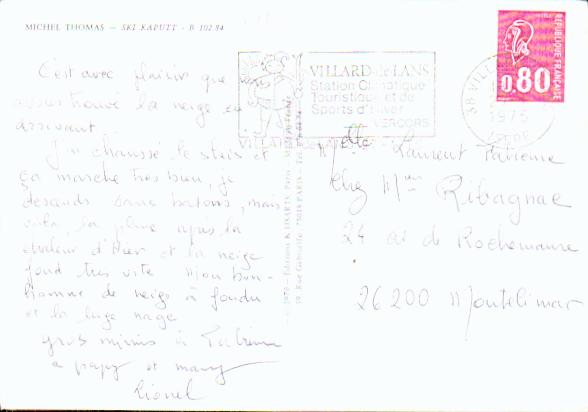 MICHEL THOMAS – SKI KAPUTT - B 102 84
C'est avec plaisir que nous
avons trouvé la neige en
arrivant
J'ai chaussé le skis et
ça marche très bien, je
descends sans batons, mais
voila, la pluie après la
chaleur d'Hier et la neige
fond très vite Mon bon-
homme de neige à fondu
et la luge nage
gros mimis à
a papy et mamy
Lionel
VILLARD-de-LANS
Station Climatique
Touristique et de
Sports d'hiver
VERCORS
38 VILL
1975
ISERE
RÉPUBLIQUE FRANÇAISE
0,80
Melle Laurent Fabienne
chez Mme Ribagnac
24 av de Rochemaure
26200 Montélimar